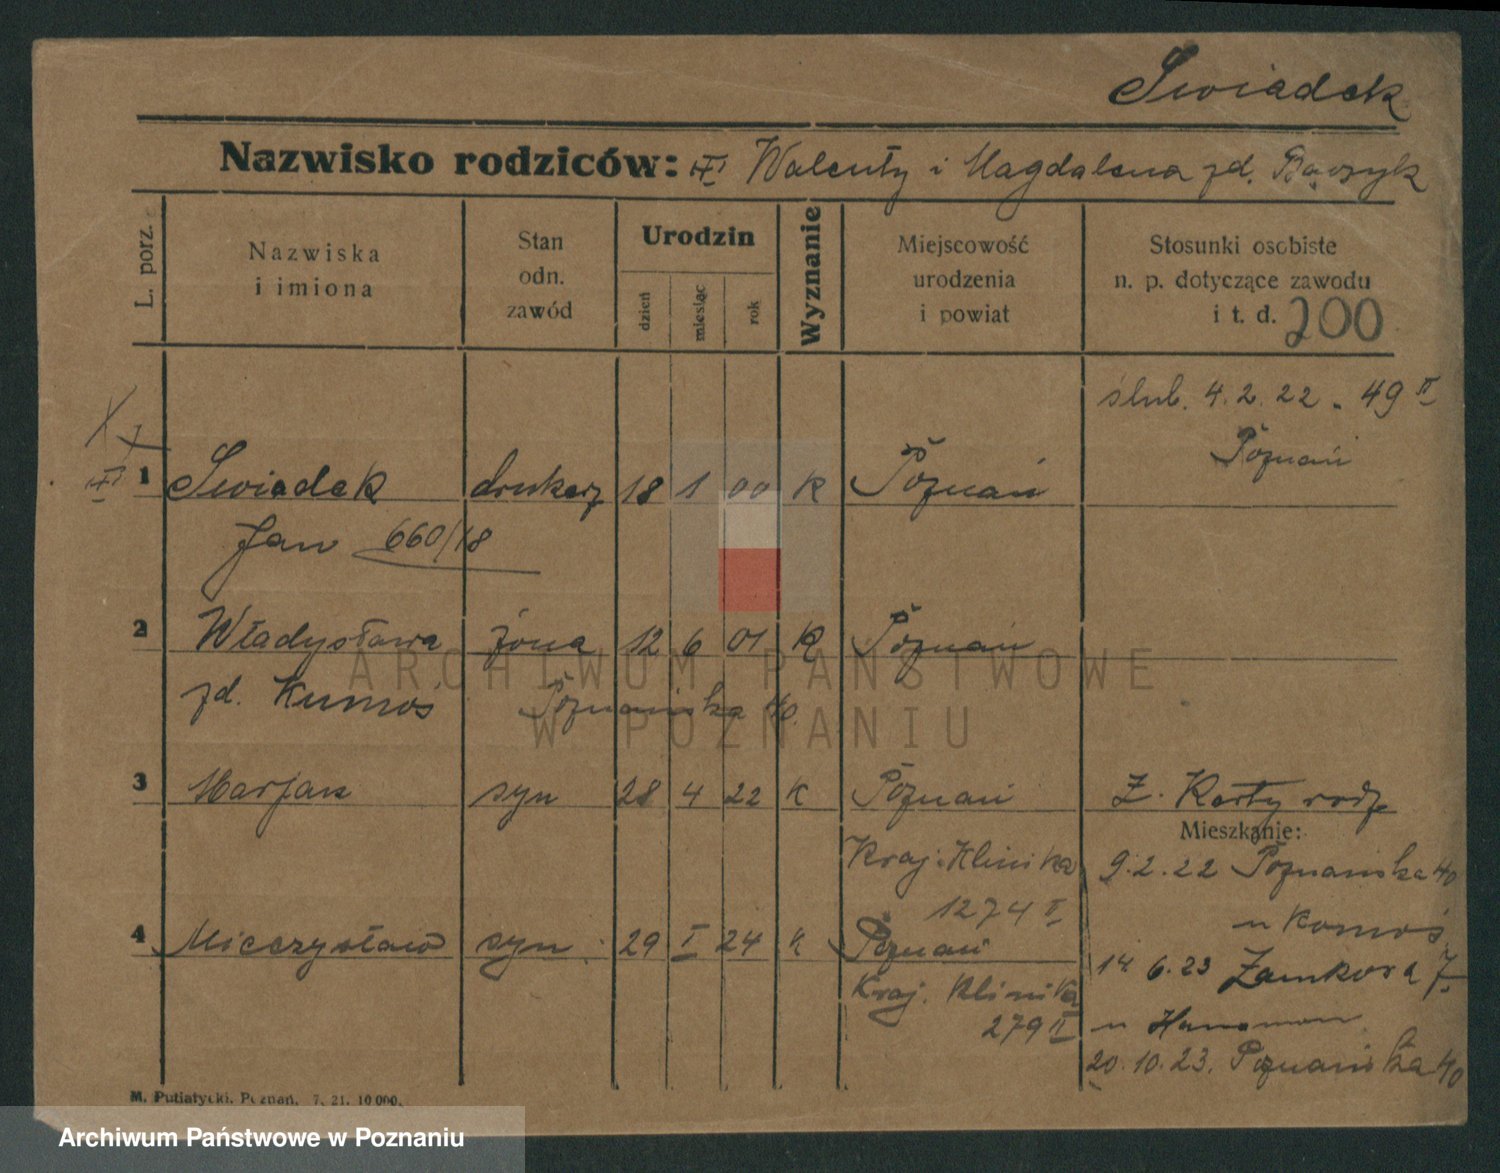 Swiadek
Nazwisko rodziców: VI Walenty i Magdalena zd. Bączyk
L. porz.
Nazwiska
i imiona
Stan
odn.
zawód
Urodzin
dzień
miesiąc
rok
Wyznanie
Miejscowość
urodzenia
i powiat
Stosunki osobiste
n. p. dotyczące zawodu
i t. d. 200
ślub. 4.2.22 - 49 II
Poznań
1 Swiadek drukarz 18 1 00 K Poznań
Jan 660/18
2 Władysława żona 12 6 01 K Poznań
zd. Kumoś Poznańska 40.
3 Marjan syn 28 4 22 K Poznań Z. Karty rodz
Mieszkanie:
Kraj. Klinika 9.2.22 Poznańska 40
1274 II u Komoś
4 Mieczysław syn 29 I 24 K Poznań
14 6.23 Zamkowa 7.
Kraj. Klinika
279 II u
20.10.23. Poznańska 40
M. Putiatycki. Poznań, 7. 21. 10 000.
ARCHIWUM PAŃSTWOWE
W POZNANIU
Archiwum Państwowe w Poznaniu